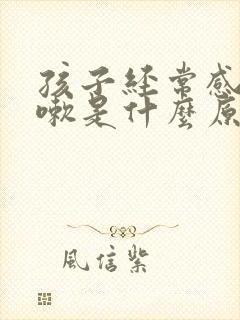 孩子經常感
嗽是什麼原
風信紫